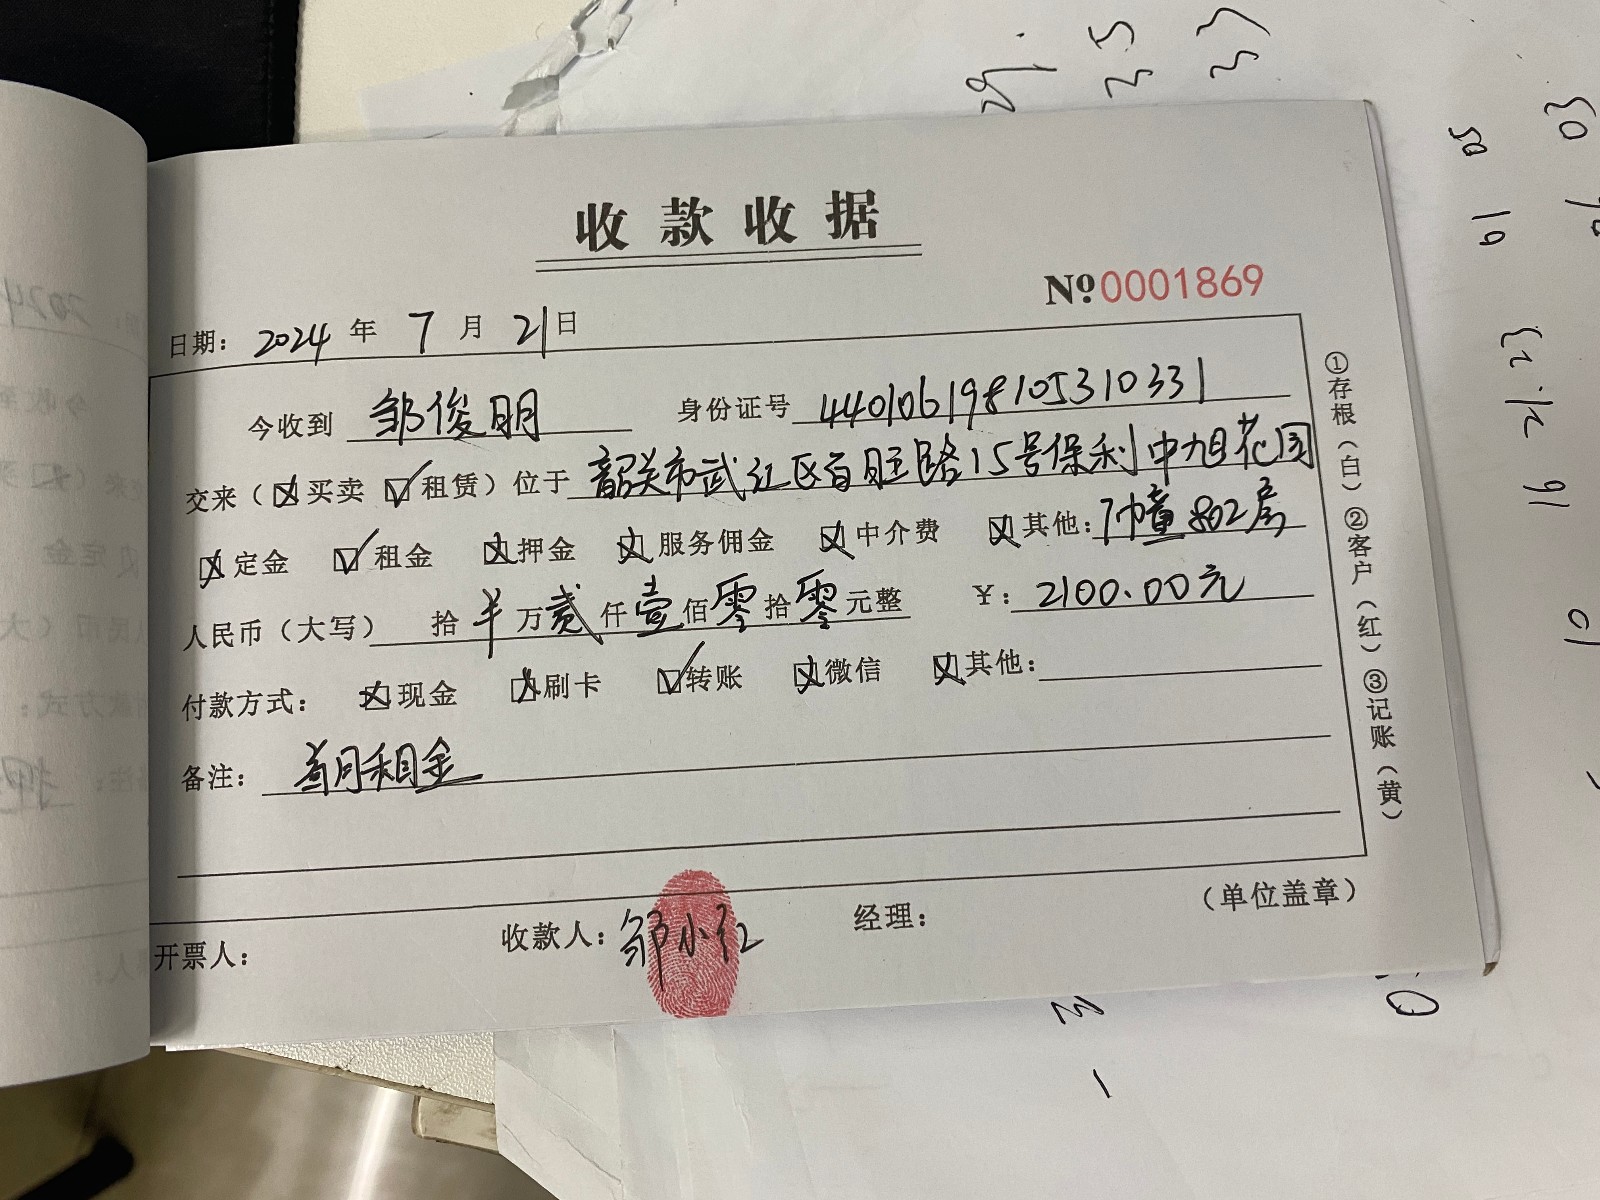 收款收据
№0001869
日期: 2024 年 7 月 21 日
今收到 邹俊明 身份证号 440106198105310331
交来(☒买卖 ☑租赁)位于 韶关市武江区百旺路15号保利中旭花园
☒定金 ☑租金 ☒押金 ☒服务佣金 ☒中介费 ☒其他: 7幢802房
人民币(大写) 拾 半 万 贰 仟 壹 佰 零 拾 零 元整 ¥: 2100.00元
付款方式: ☒现金 ☒刷卡 ☑转账 ☒微信 ☒其他:
备注: 首月租金
开票人: 收款人: 邹小红 经理: (单位盖章)
①存根(白)②客户(红)③记账(黄)